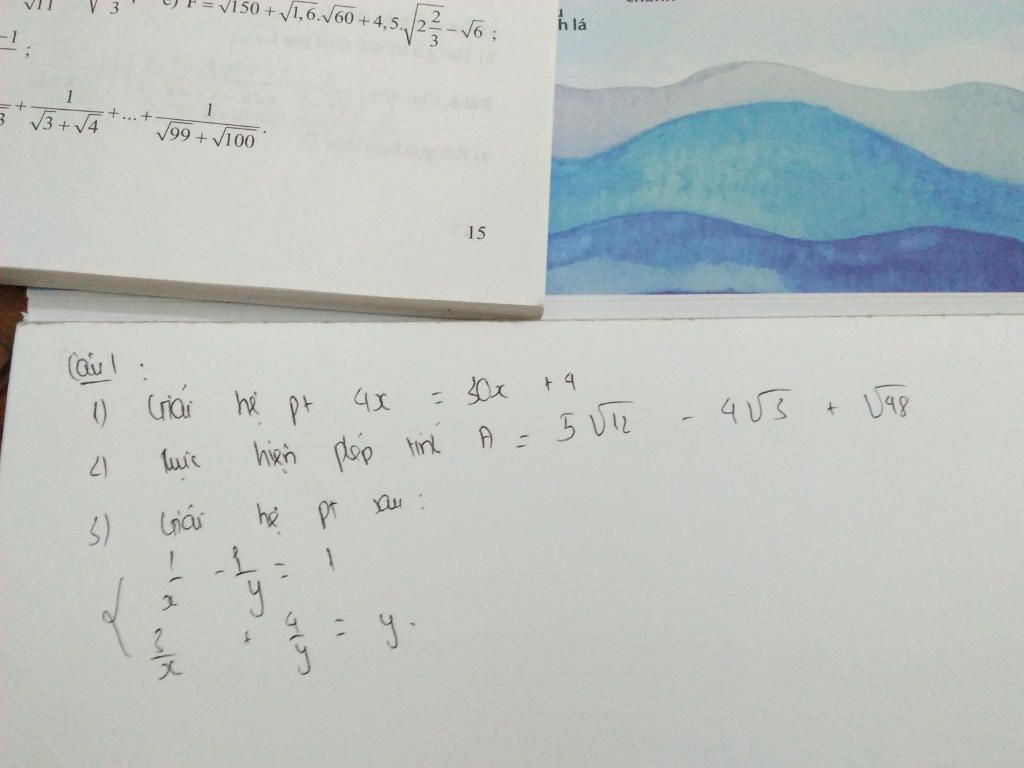 √11 √3 ; e) F = √150 + √1,6.√60 + 4,5.√(2 2/3) − √6 ;
−1 ;
3 + 1/(√3 + √4) + ... + 1/(√99 + √100) .
15
h lá
Câu 1 :
1) Giải hệ pt 4x = 30x + 4
2) thực hiện phép tính A = 5√12 − 4√3 + √48
3) Giải hệ pt sau :
{ 1/x − 1/y = 1
3/x + 4/y = y .